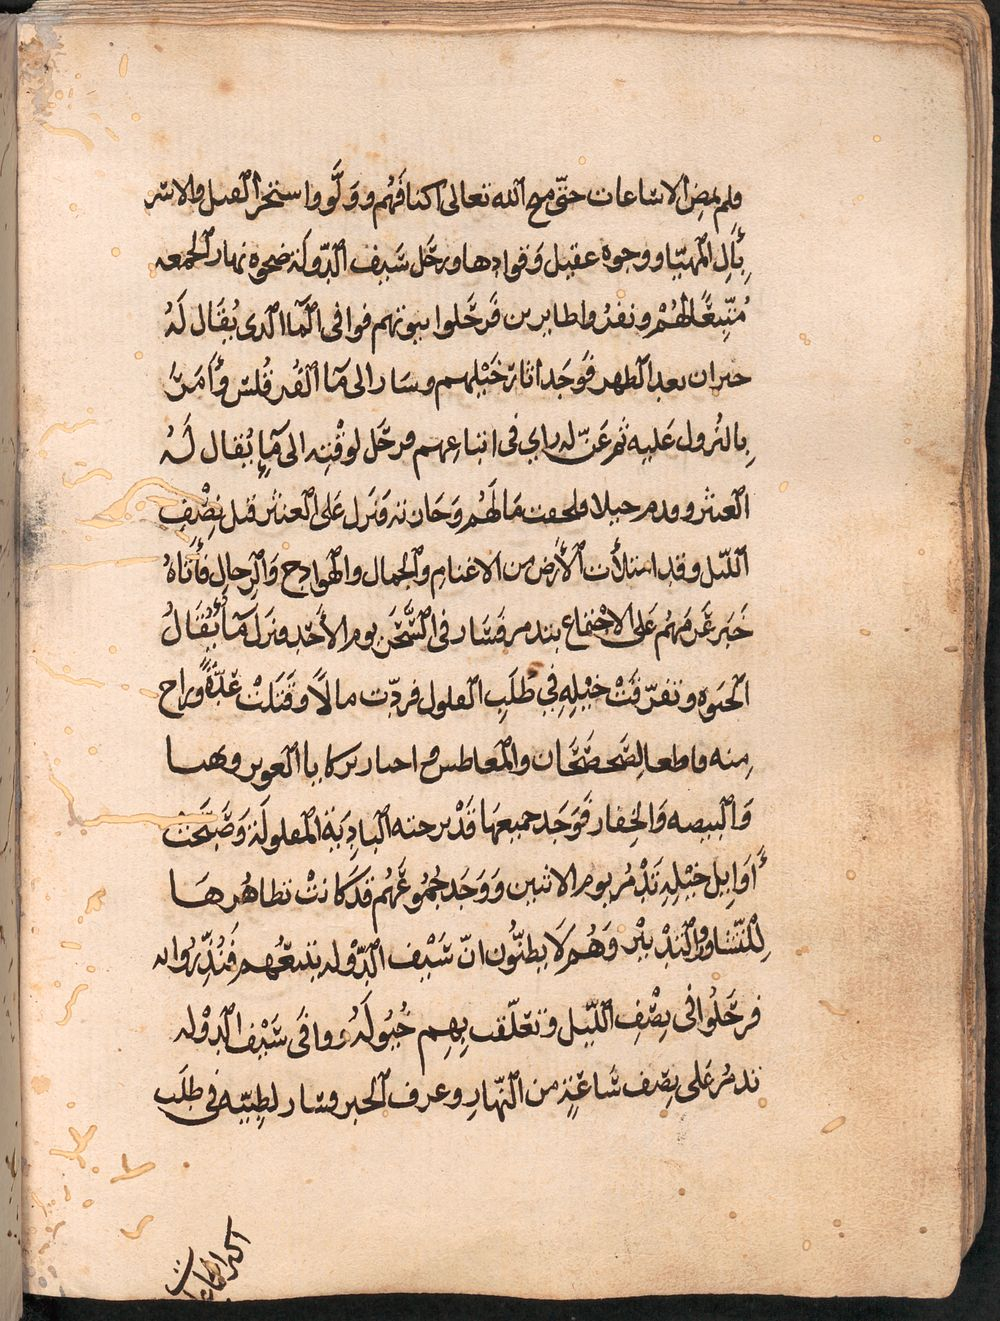 ولم يمض الا ساعات حتى منح الله تعالى اكتافهم وولّوا واستحر القتل والاسر
بآل المهيّا ووجوه عقيل وقوادها ورحل سيف الدولة ضحوه نهار الجمعه
متّبعًا لهم ونفذوا طايرين فرحّلوا بيوتهم فوافى الما الذى يقال له
حيران بعد الظهر فوجد اثار خيلهم وسار الى ما الفرقلس وأمر
بالنزول عليه ثم عنّ له راي في اتباعهم فرحّل لوقته الى ماء يقال له
العنثر وقدم خيلا فلحقت مالهم وحازته ونزل على العنثر قبل نصف
الليل وقد امتلأت الأرض من الاغنام والجمال والهوادج والرحال فأتاه
خبر عزمهم على الاجتماع بتدمر فسار في السّحر يوم الأحد فنزل ماء يقال
الجباه وتفرّقت خيله في طلب الفلول فردّت مالاً وقتلت عدّةً وراح
منه قاطعا الصّحصحان والمعاطس واجتاز بركايا العوير ونهيا
والبييضه والجفار فوجد جميعها قد نزحته البادية المفلولة وصبّحت
أوايل خيله تدمر يوم الاثنين ووجد جموعهم قد كانت بظاهرها
للتّشاور والتدبير وهم لا يظنّون انّ سيف الدّوله يتبعهم فنُذّروا به
فرحّلوا في نصف الليل وتعلّقت بهم خيوله ووافى سيف الدوله
تدمر على نصف ساعةٍ من النّهار وعرف الخبر وسار لطيته في طلب